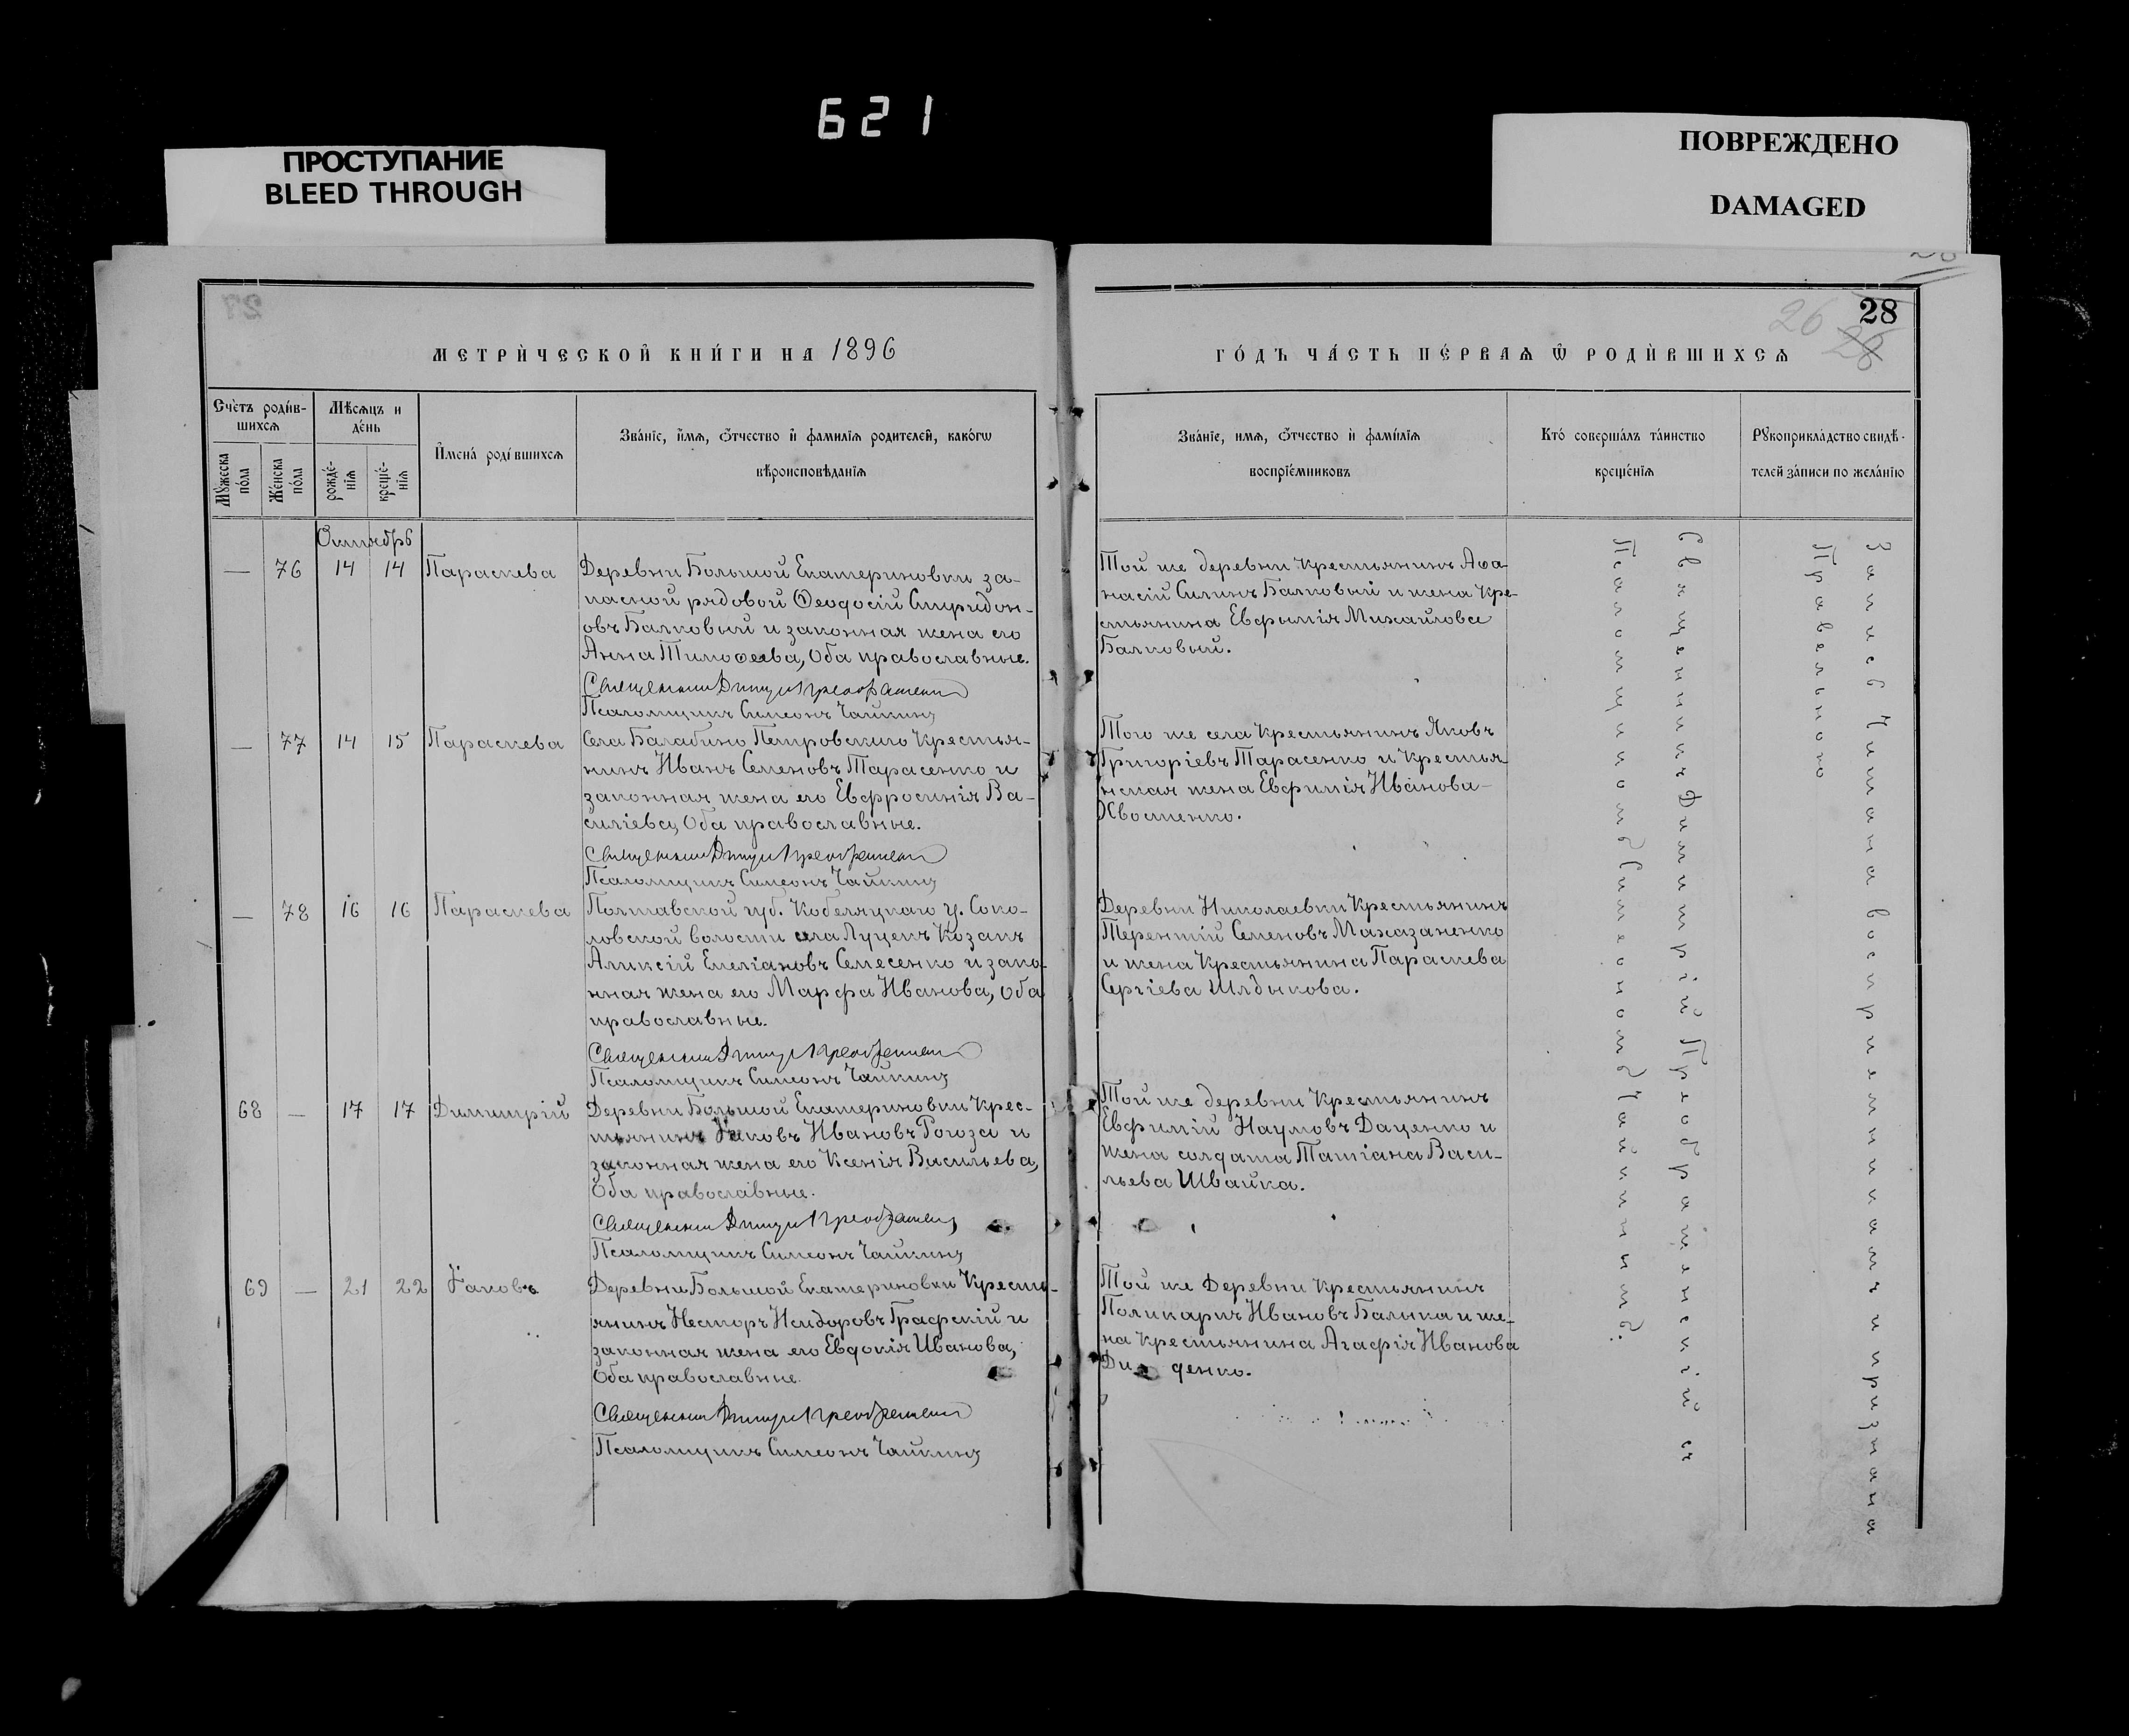 621
ПРОСТУПАНИЕ
BLEED THROUGH
ПОВРЕЖДЕНО
DAMAGED
28
26
28
МЕТРИ́ЧЕСКОЙ КНИ́ГИ НА 1896
ГО́ДЪ ЧА́СТЬ ПЕ́РВАѦ Ѡ РОДИ́ВШИХСѦ
Сче́тъ роди́в-
шихсѧ
Мѣ́сѧцъ и
де́нь
Мꙋ́жеска
по́ла
Же́нска
по́ла
рожде́-
нїѧ
креще́-
нїѧ
И҆мена́ роди́вшихсѧ
Зва́нїе, и҆́мѧ, ѻ҆́тчество и҆ фамилїѧ родителей, како́гѡ
вѣроисповѣ́данїѧ
Зва́нїе, имѧ, ѻ҆́тчество и҆ фами́лїѧ
воспрїе́мниковъ
Кто́ соверша́лъ та́инство
креще́нїѧ
Рꙋкоприкла́дство свидѣ́-
телей за́писи по жела́нїю
Октябрь
— 76 14 14 Параскева
Деревни Большой Екатериновки за-
пасной рядовой Ѳеодосій Спиридон-
овъ Балковый и законная жена его
Анна Тимоѳеева, Оба православные.
Священникъ Димитрій Преображенскій
Псаломщикъ Симеонъ Чайкинъ
Той же деревни Крестьянинъ Аѳа-
насій Силинъ Балковый и жена Кре-
стьянина Евфимія Михайлова
Балковый.
— 77 14 15 Параскева
Села Балабино Петровскаго Крестья-
нинъ Иванъ Семеновъ Тарасенко и
законная жена его Евфросинія Ва-
силіева, Оба православные.
Священникъ Димитрій Преображенскій
Псаломщикъ Симеонъ Чайкинъ
Того же села Крестьянинъ Яковъ
Григоріевъ Тарасенко и Крестья-
нская жена Евфимія Иванова
Хвостенко.
— 78 16 16 Параскева
Полтавской губ. Кобеляцкаго у. Соко-
ловской волости села Луцекъ Козакъ
Аликсій Емеліановъ Семесенко и зако-
нная жена его Марфа Иванова, Оба
православные.
Священникъ Димитрій Преображенскій
Псаломщикъ Симеонъ Чайкинъ
Деревни Николаевки Крестьянинъ
Терентій Семеновъ
и жена Крестьянина Параскева
Сергіева
68 — 17 17 Димитрій
Деревни Большой Екатериновки Крес-
тьянинъ Іаковъ Ивановъ Рогоза и
законная жена его Ксенія Васильева,
Оба православные.
Священникъ Димитрій Преображенскій
Псаломщикъ Симеонъ Чайкинъ
Той же деревни Крестьянинъ
Евфимій Наумовъ Даценко и
жена солдата Татіана Васи-
льева Швайка.
69 — 21 22 Іаковъ
Деревни Большой Екатериновки Кресть-
янинъ Несторъ Исидоровъ Графскій и
законная жена его Евдокія Иванова,
Оба православные.
Священникъ Димитрій Преображенскій
Псаломщикъ Симеонъ Чайкинъ
Той же Деревни Крестьянинъ
Поликарпъ Ивановъ Балыка и же-
на Крестьянина Агафія Иванова
денко.
Священникъ Димитрій Преображенскій съ
Псаломщикомъ Симеономъ Чайкинымъ.
Запись читана воспріемникамъ и признана
Правильною